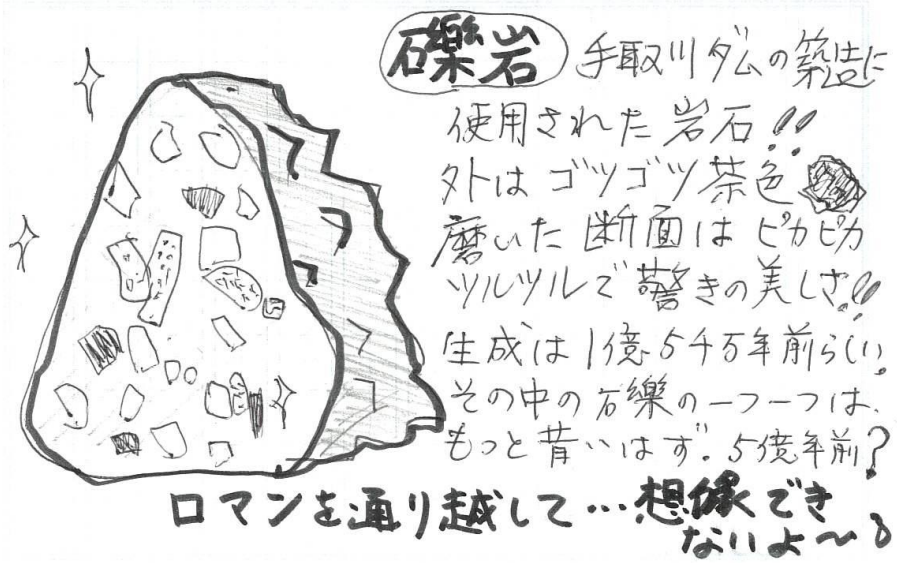 礫岩 手取川ダムの築造に
使用された岩石!!
外はゴツゴツ茶色
磨いた断面はピカピカ
ツルツルで驚きの美しさ!!
生成は1億5千万年前らしい。
その中の礫の一つ一つは、
もっと昔いはず。5億年前?
ロマンを通り越して…想像でき
ないよ〜